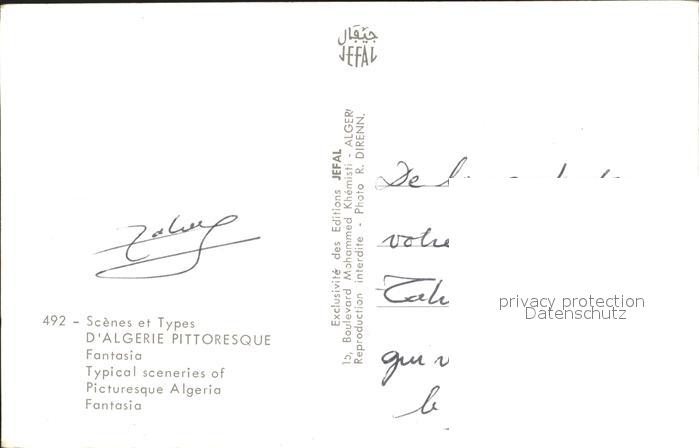 جيفال
JEFAL
Exclusivité des Editions JEFAL
15, Boulevard Mohammed Khémisti - ALGER
Reproduction interdite - Photo R. DIRENN.
votre
Tah
qui v
le
privacy protection
Datenschutz
492 - Scènes et Types
D'ALGERIE PITTORESQUE
Fantasia
Typical sceneries of
Picturesque Algeria
Fantasia